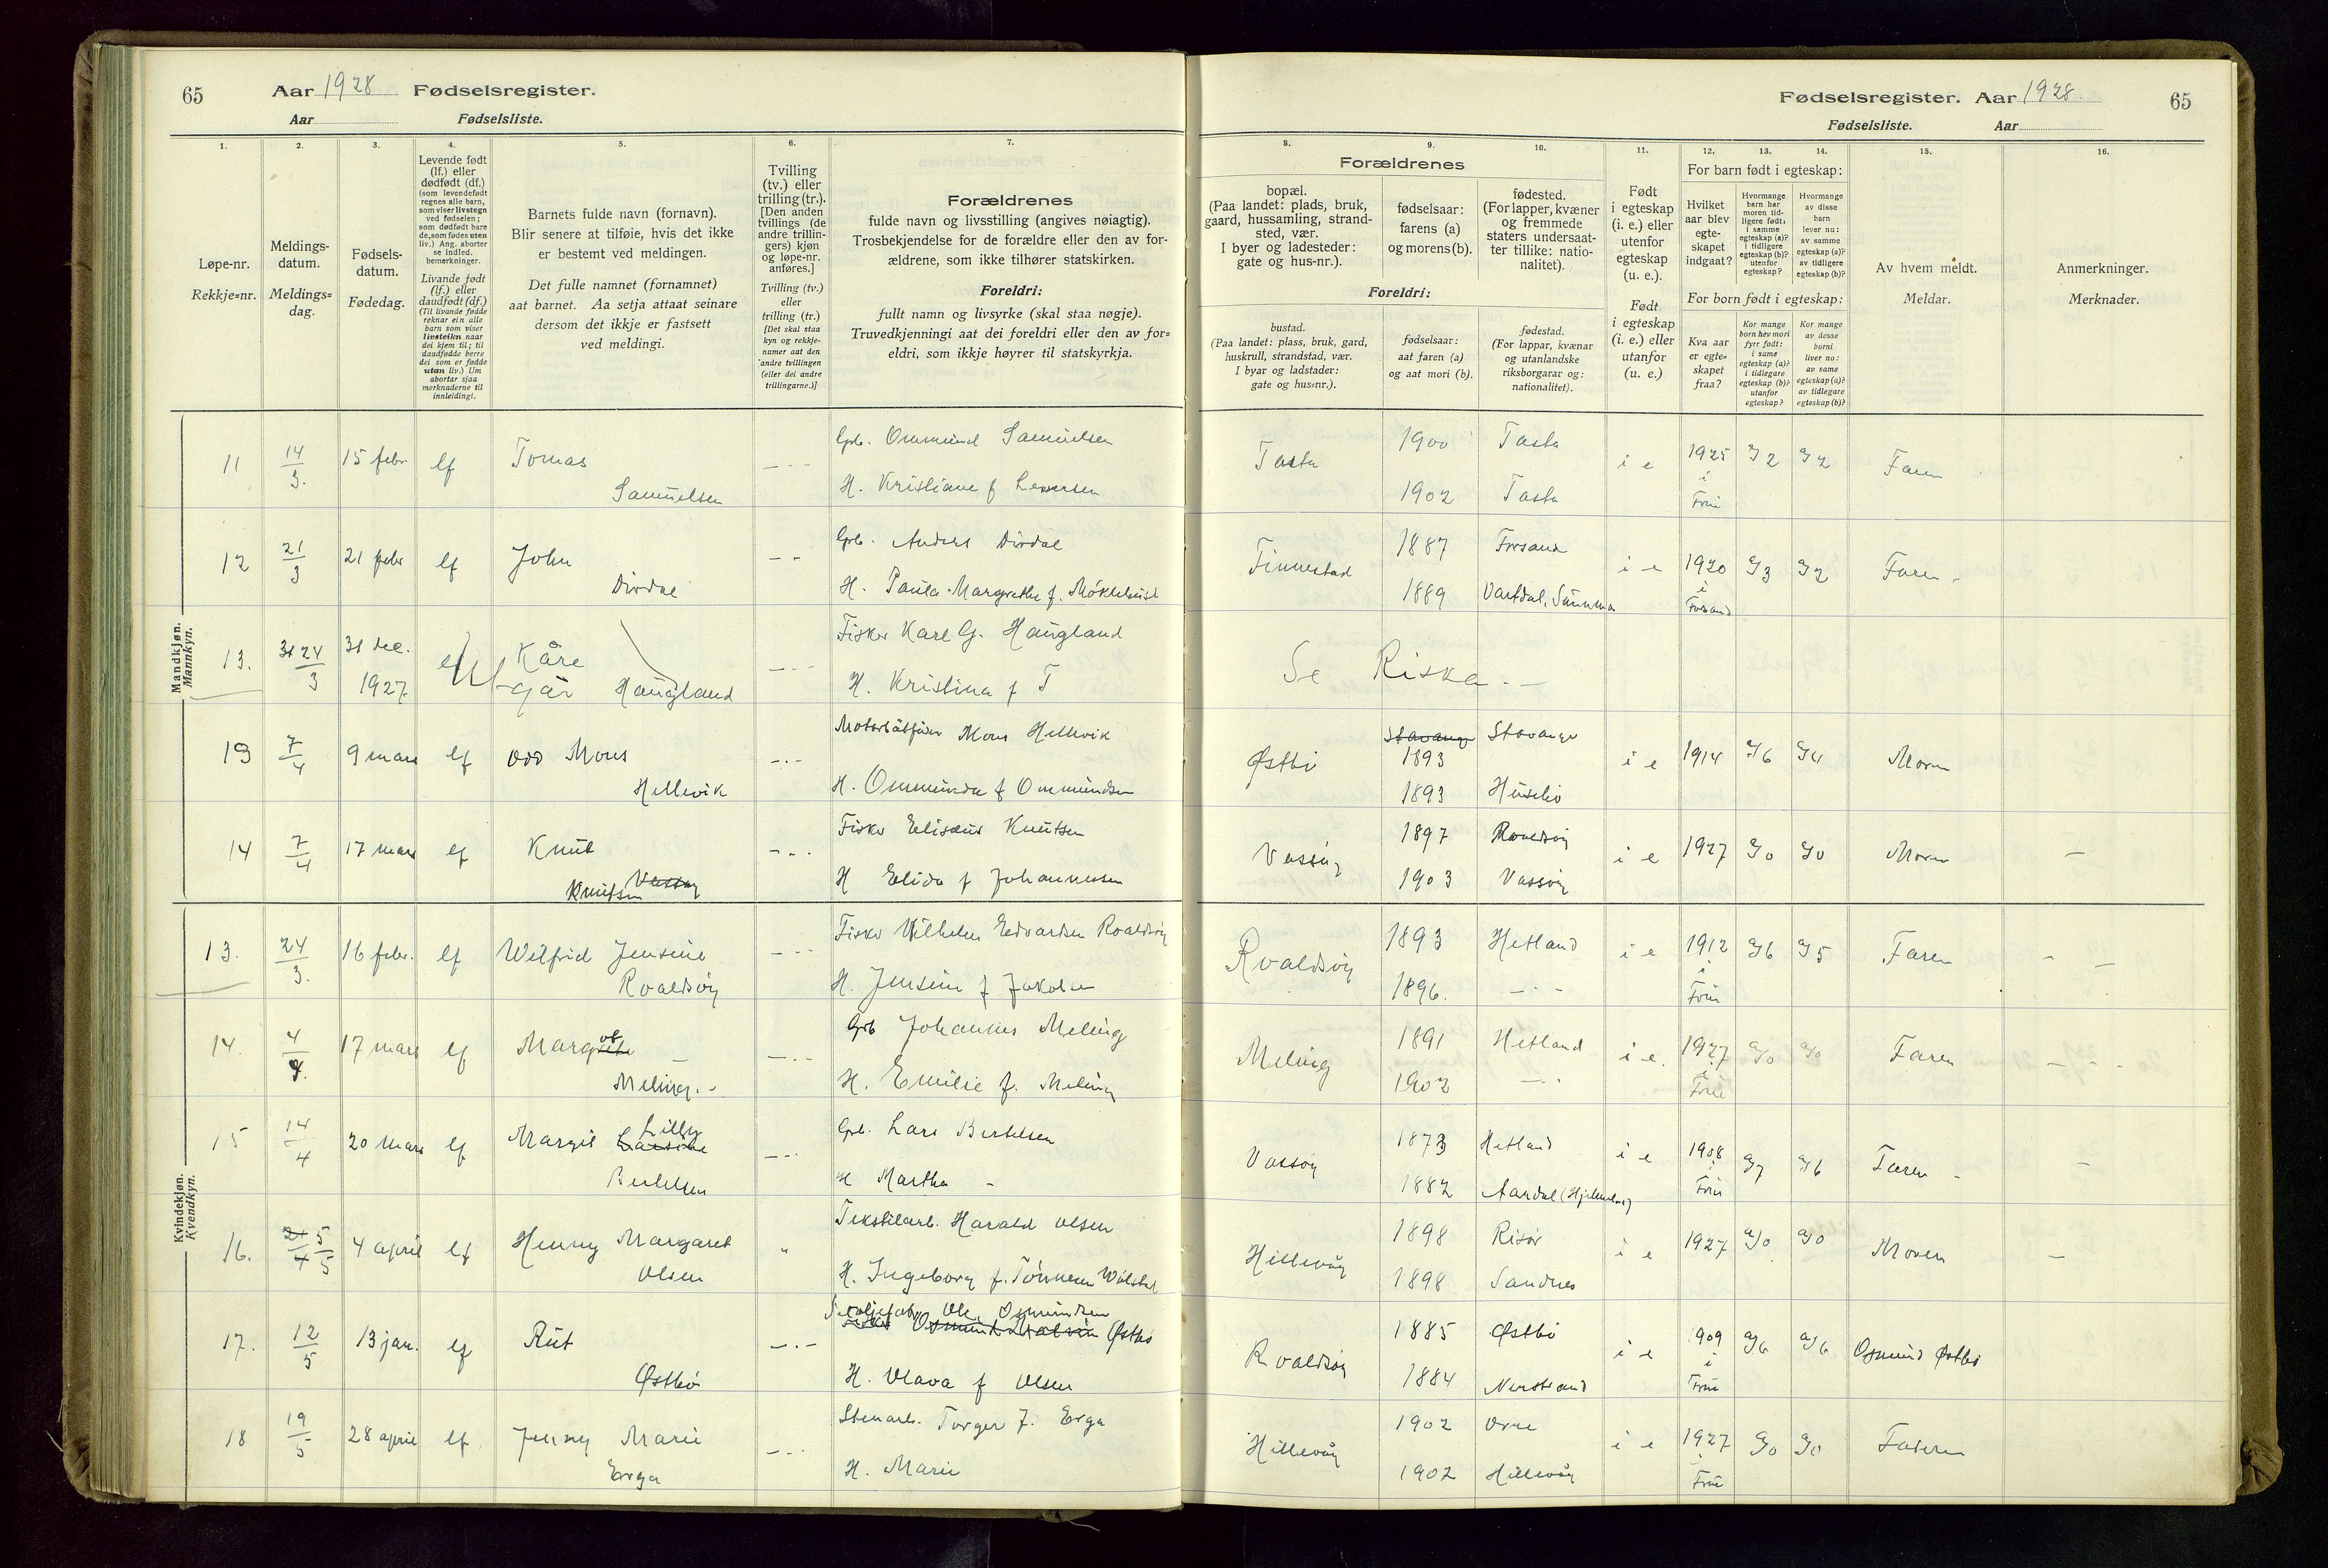 65
Aar 1928 Fødselsregister.
Aar Fødselsliste.
1.
2.
3.
4.
5.
6.
7.
Løpe-nr.
Rekkje=nr.
Meldings-
datum.
Meldings=
dag.
Fødsels-
datum.
Fødedag.
Levende født
(lf.) eller
dødfødt (df.)
(som levendefødt
regnes alle barn,
som viser livstegn
ved fødselen;
som dødfødt bare
de, som fødes uten
liv.) Ang. aborter
se indled.
bemerkninger.
Livande født
(lf.) eller
daudfødt (df.)
(Til livande fødde
reknar ein alle
barn som viser
livsteikn naar
dei kjem til; til
daudfødde berre
dei som er fødde
utan liv.) Um
abortar sjaa
merknaderne til
innleidingi.
Barnets fulde navn (fornavn).
Blir senere at tilføie, hvis det ikke
er bestemt ved meldingen.
Det fulle namnet (fornamnet)
aat barnet. Aa setja attaat seinare
dersom det ikkje er fastsett
ved meldingi.
Tvilling
(tv.) eller
trilling (tr.).
[Den anden
tvillings (de
andre trillin-
gers) kjøn
og løpe-nr.
anføres.]
Tvilling (tv.)
eller
trilling (tr.)
[Det skal staa
kyn og rekkje-
numer aat den
andre tvillingen
(eller dei andre
trillingarne.)]
Forældrenes
fulde navn og livsstilling (angives nøiagtig).
Trosbekjendelse for de forældre eller den av for-
ældrene, som ikke tilhører statskirken.
Foreldri:
fullt namn og livsyrke (skal staa nøgje).
Truvedkjenningi aat dei foreldri eller den av for=
eldri, som ikkje høyrer til statskyrkja.
Mandkjøn.
Mannkyn.
11 14/3. 15 febr lf Tomas Samuelsen
Grb. Ommund Samuelsen
H. Kristiane f
12 21/3 21 febr lf John Dirdal
Grb. Anders Dirdal
H. Paula Margrethe f.
13. 24/3 31 dec. 1927 Kåre Haugland
Fisker Karl G. Haugland
H. Kristina f T
13 7/4 9 mars lf Odd Mons Hellevik
Mons Hellevik
H. Ommunda f Ommundsen
14 7/4 17 mars lf Knut Vassøy Knutsen
Fisker Elisæus Knutsen
H Elida f Johannessen
Kvindekjøn.
Kvendkyn.
13. 24/3. 16 febr. lf Wilfrid Jensine Roaldsøy
Fisker Vilhelm Edvardsen Roaldsøy
H. Jensine f Jakobsen
14. 4/4. 17 mars lf Meling.
Grb Johannes Meling
H. Emilie f. Meling
15 14/4 20 mars lf Margit Lilly Larsine Bertelsen
Grb. Lars Bertelsen
H Martha -
16. 5/5 4 april lf Henny Margaret Olsen
Tekstilarb. Harald Olsen
H. Ingeborg f. Tønnesen
17. 12/5 13 jan. lf Rut Østbø
Ole Osmundsen Østbø
H. Olava f Olsen
18 19/5 28 april lf Jenny Marie Erga
Stenarb. Torger J. Erga
H. Marie
Fødselsregister. Aar 1928.
65
Fødselsliste. Aar
8.
9.
10.
11.
12.
13.
14.
15.
16.
Forældrenes
bopæl.
(Paa landet: plads, bruk,
gaard, hussamling, strand-
sted, vær.
I byer og ladesteder:
gate og hus-nr.).
fødselsaar:
farens (a)
og morens (b).
fødested.
(For lapper, kvæner
og fremmede
staters undersaat-
ter tillike: natio-
nalitet).
Foreldri:
bustad.
(Paa landet: plass, bruk, gard,
huskrull, strandstad, vær.
I byar og ladstader:
gate og hus=nr.).
fødselsaar:
aat faren (a)
og aat mori (b).
fødestad.
(For lappar, kvænar
og utanlandske
riksborgarar og:
nationalitet).
Født
i egteskap
(i. e.) eller
utenfor
egteskap
(u. e.).
Født
i egteskap
(i. e.) eller
utanfor
(u. e.)
For barn født i egteskap:
Hvilket
aar blev
egte-
skapet
indgaat?
Hvormange
barn har
moren tid-
ligere født:
i samme
egteskap (a)?
i tidligere
egteskap (b)?
utenfor
egteskap?
Hvormange
av disse
barn
lever nu:
av samme
egteskap (a)?
av tidligere
egteskap (b)?
For born født i egteskap:
Kva aar
er egte-
skapet
fraa?
Kor mange
born hev mori
fyrr født:
i same
egteskap (a)?
i tidlegare
egteskap (b)?
utanfor
egteskap?
Kor mange
av desse
borni
liver no:
av same
egteskap (a)?
av tidlegare
egteskap (b)?
Av hvem meldt.
Meldar.
Anmerkninger.
Merknader.
Tasta 1900 Tasta i e 1925 a/2 a/2 Faren
1902 Tasta
Finnestad 1887 Forsand i e 1920 a/3 a/2 Faren
1889 Forsand
Se Riska
Østbø Stavanger 1893 Stavanger i e 1914 a/6 a/4 Moren
1893 Husebø
Vassøy 1897 Roaldsøy i e 1927 a/0 a/0 Moren
1903 Vassøy
Roaldsøy 1893 Hetland i e 1912 a/6 a/5 Faren
1896.
Meling 1891 Hetland i e. 1927 a/0 a/0 Faren
1902
Vassøy 1873 Hetland i e 1908 a/7 a/6 Faren
1882 Aardal (Hjelmeland)
Hillevåg 1898 Risør i e 1927 a/0 a/0 Moren
1898 Sandnes
Roaldsøy 1885 Østbø i e 1909 a/6 a/6 Osmund Østbø
1884 Nerstrand
Hillevåg 1902 Orre i e 1927 a/0 a/0 Faderen
1902 Hillevåg